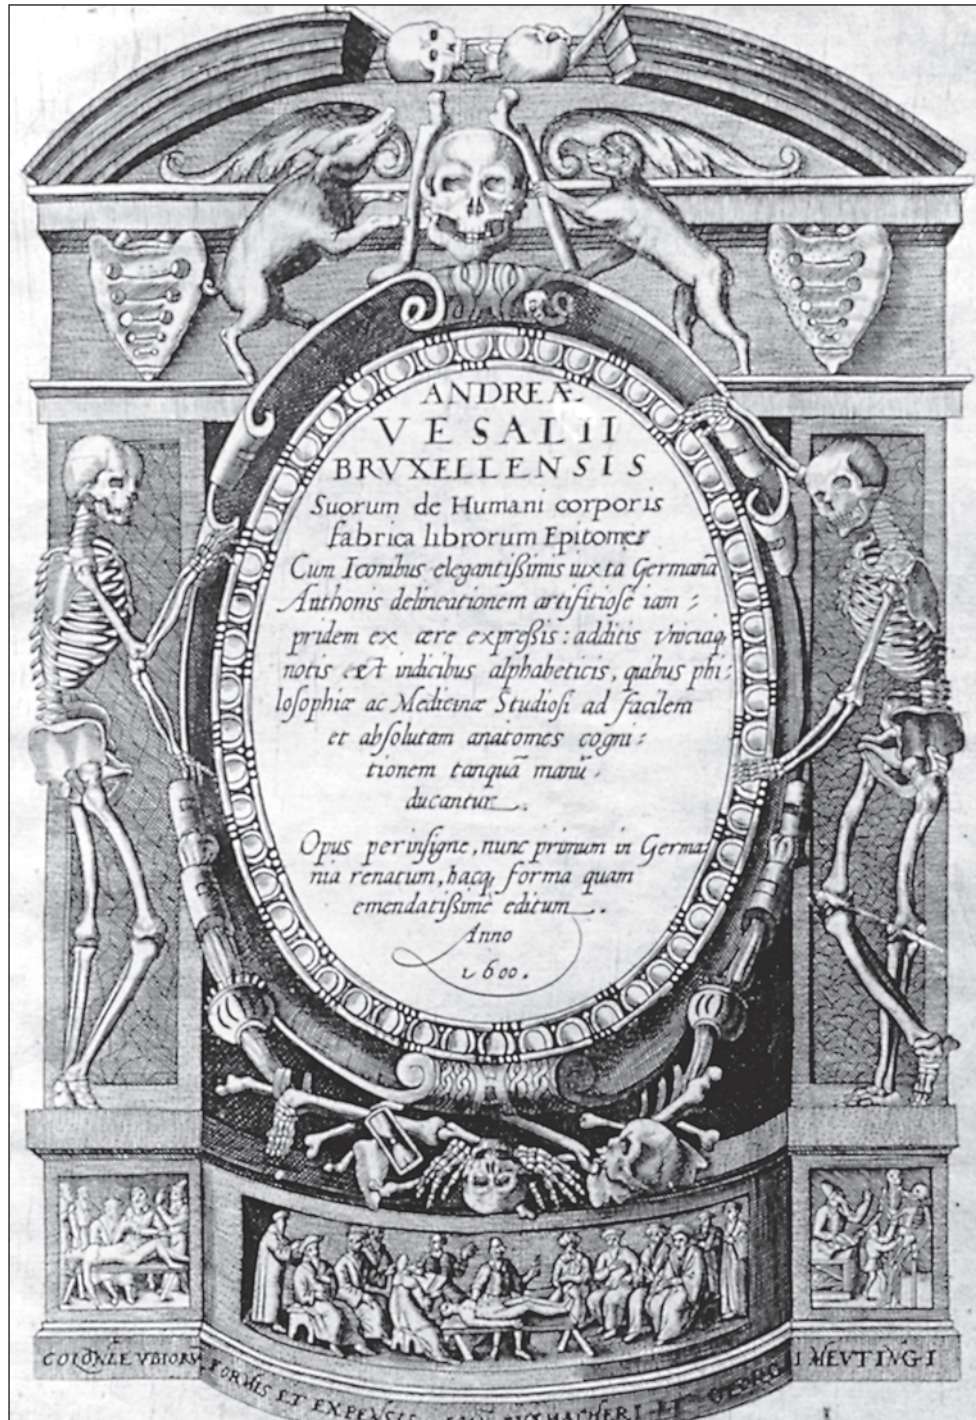 ANDREÆ
VESALII
BRVXELLENSIS
Suorum de Humani corporis
fabrica librorum Epitome
Cum Iconibus elegantißimis iuxta Germanā
Anthonis delineationem artifitiose iam
pridem ex ære expreßis: additis
notis et indicibus alphabeticis, quibus phi:
losophiæ ac Medicinæ Studiosi ad facilem
et absolutam anatomes cogni:
tionem tanquā manu
ducantur.
Opus perinsigne, nunc primum in Germa:
nia renatum, hacq; forma quam
emendatißimè editum.
Anno
1600.
COLONIÆ VBIORV FORMIS ET EXPENSIS ET GEORGI MEUTINGI